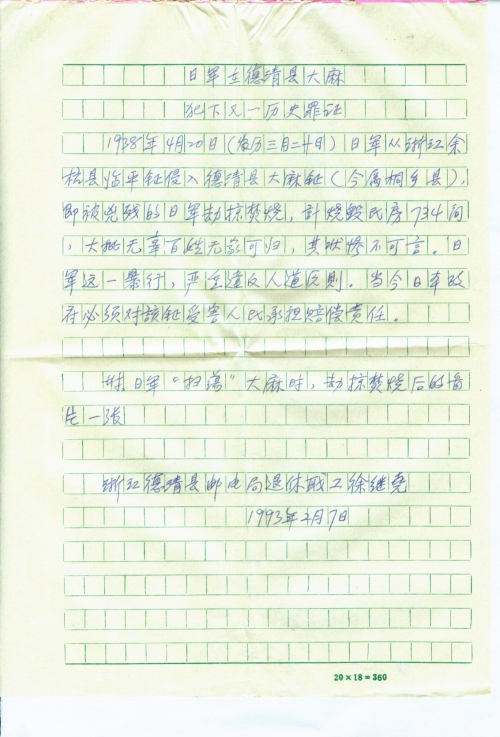 日军在德清县大麻
犯下又一历史罪证
1938年4月20日(农历三月二十日)日军从浙江余
杭县临平镇侵入德清县大麻镇(今属桐乡县),
即被残的日军劫掠焚烧,计烧毁民房734间
,大批无辜百姓无家可归,其状惨不可言。日
军这一暴行,严重违反人道原则。当今日本政
府必须对该镇受害人民承担赔偿责任。
附日军“扫荡”大麻时,劫掠焚烧后的旧
片一张
浙江德清县邮电局退休职工徐继尧
1993年2月7日
20×18=360